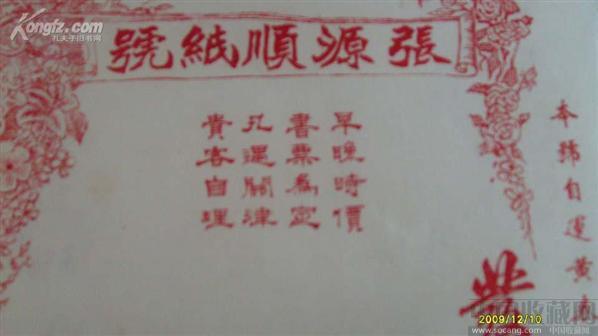 Kongfz.com
孔夫子旧书网
張源順紙號
早晚時價
書票為定
凡遇關津
貴客自理
本號自運黃
2009/12/10
中国收藏网
www.socang.com 中国收藏网